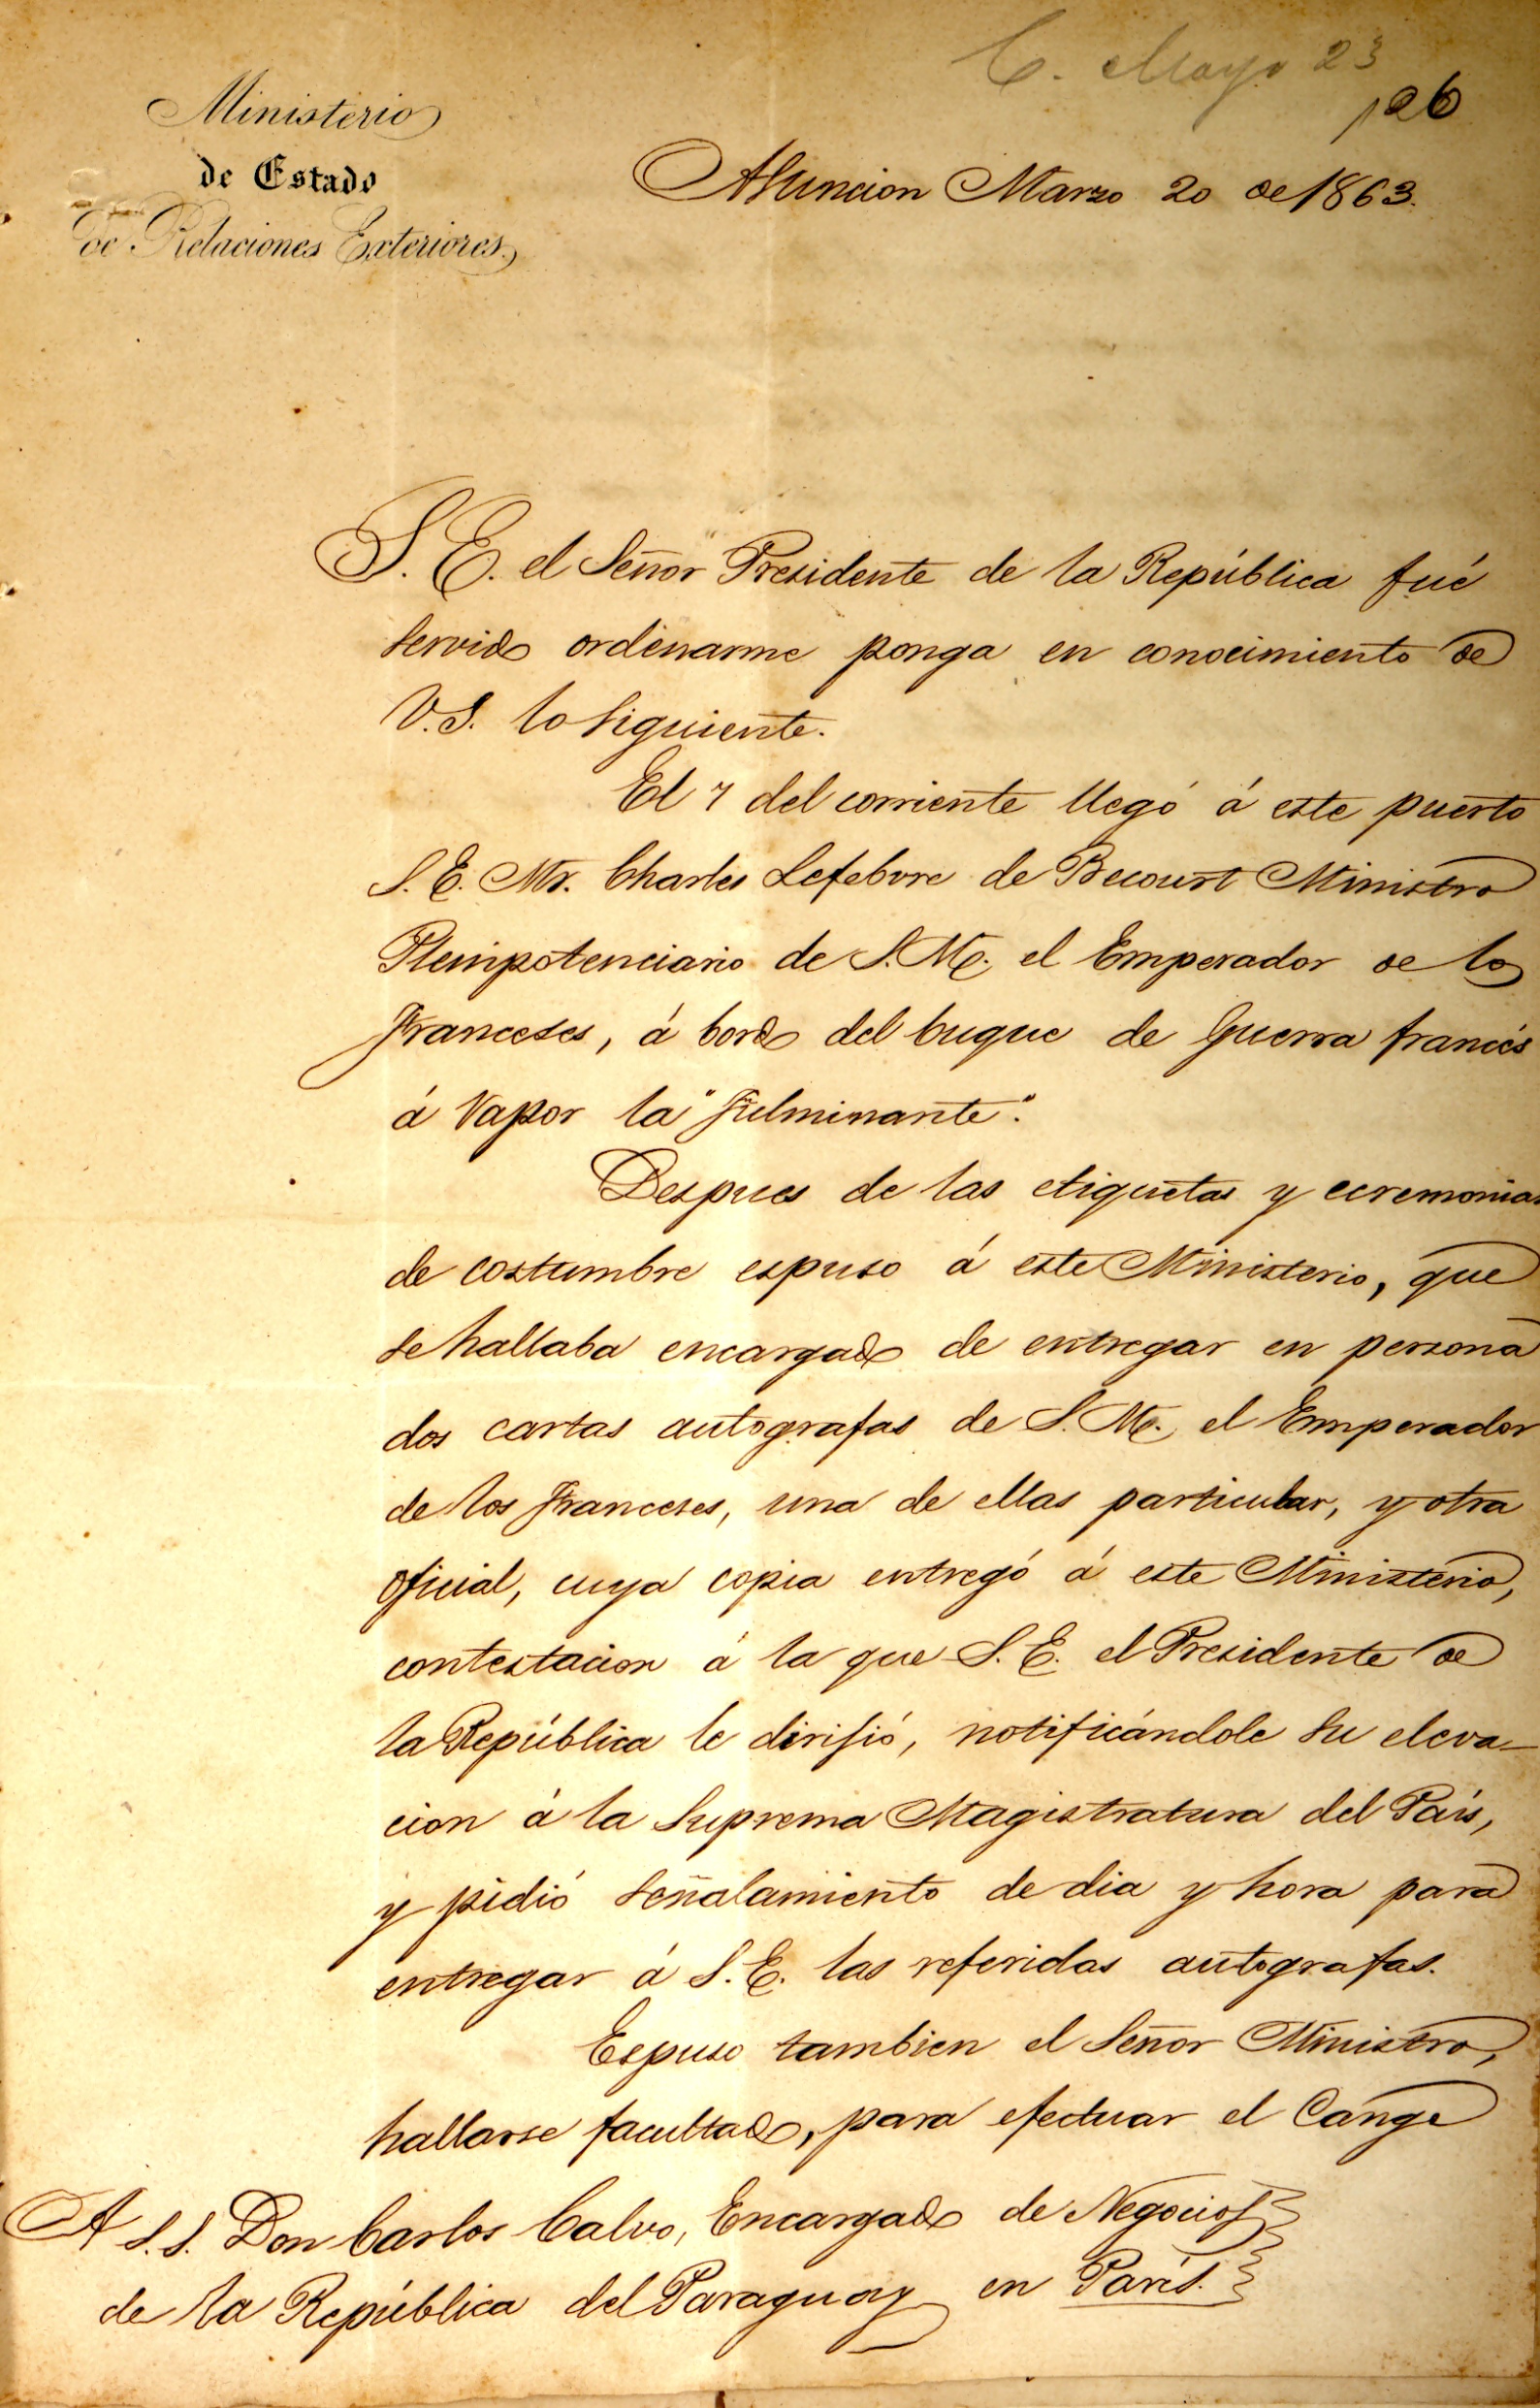 C. Mayo 23
126
Ministerio
de Estado
de Relaciones Exteriores.
Asuncion Marzo 20 de 1863.
S. E. el Señor Presidente de la República fué
servido ordenarme ponga en conocimiento de
V.S. lo siguiente.
El 7 del corriente llegó á este puerto
S. E. Mr. Charles Lefebvre de Becourt Ministro
Plenipotenciario de S. M. el Emperador de los
Franceses, á bordo del buque de Guerra francés
á Vapor la "Fulminante".
Despues de las etiquetas y ceremonias
de costumbre espuso á este Ministerio, que
se hallaba encargado de entregar en persona
dos cartas autografas de S. M. el Emperador
de los Franceses, una de ellas particular, y otra
oficial, cuya copia entregó á este Ministerio,
contestacion á la que S. E. el Presidente de
la República le dirijió, notificándole su eleva-
cion á la Suprema Magistratura del País,
y pidió señalamiento de dia y hora para
entregar á S. E. las referidas autografas.
Espuso tambien el Señor Ministro,
hallarse facultado, para efectuar el Cange
A S. S. Don Carlos Calvo, Encargado de Negocios
de la República del Paraguay en París.